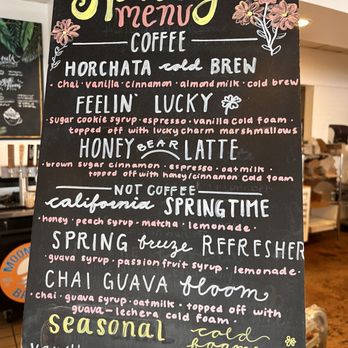 menu
COFFEE
HORCHATA cold BREW
• chai • vanilla • cinnamon • almond milk • cold brew
FEELIN' LUCKY
sugar cookie syrup • espresso • vanilla cold foam •
topped off with lucky charm marshmallows
HONEY BEAR LATTE
• brown sugar cinnamon • espresso • oatmilk •
topped off with honey/cinnamon cold foam
NOT COFFEE
california SPRINGTIME
• honey • peach syrup • matcha • lemonade •
SPRING breeze REFRESHER
guava syrup • passion fruit syrup • lemonade •
CHAI GUAVA bloom
• chai • guava syrup • oatmilk • topped off with
guava-lechera cold foam •
seasonal cold